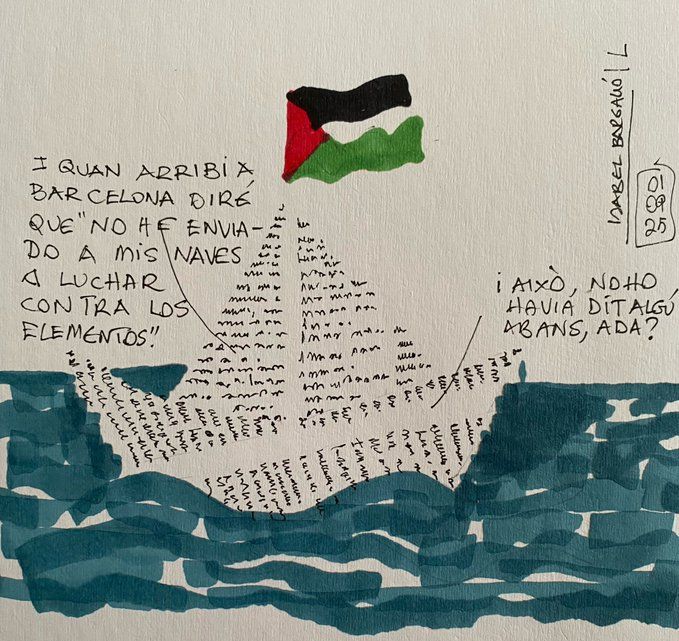 I QUAN ARRIBI A
BARCELONA DIRÉ
QUE "NO HE ENVIA-
DO A MIS NAVES
A LUCHAR
CONTRA LOS
ELEMENTOS"
I AIXÒ, NO HO
HAVIA DIT ALGÚ
ABANS, ADA?
ISABEL BARGALLÓ | L
01
09
25